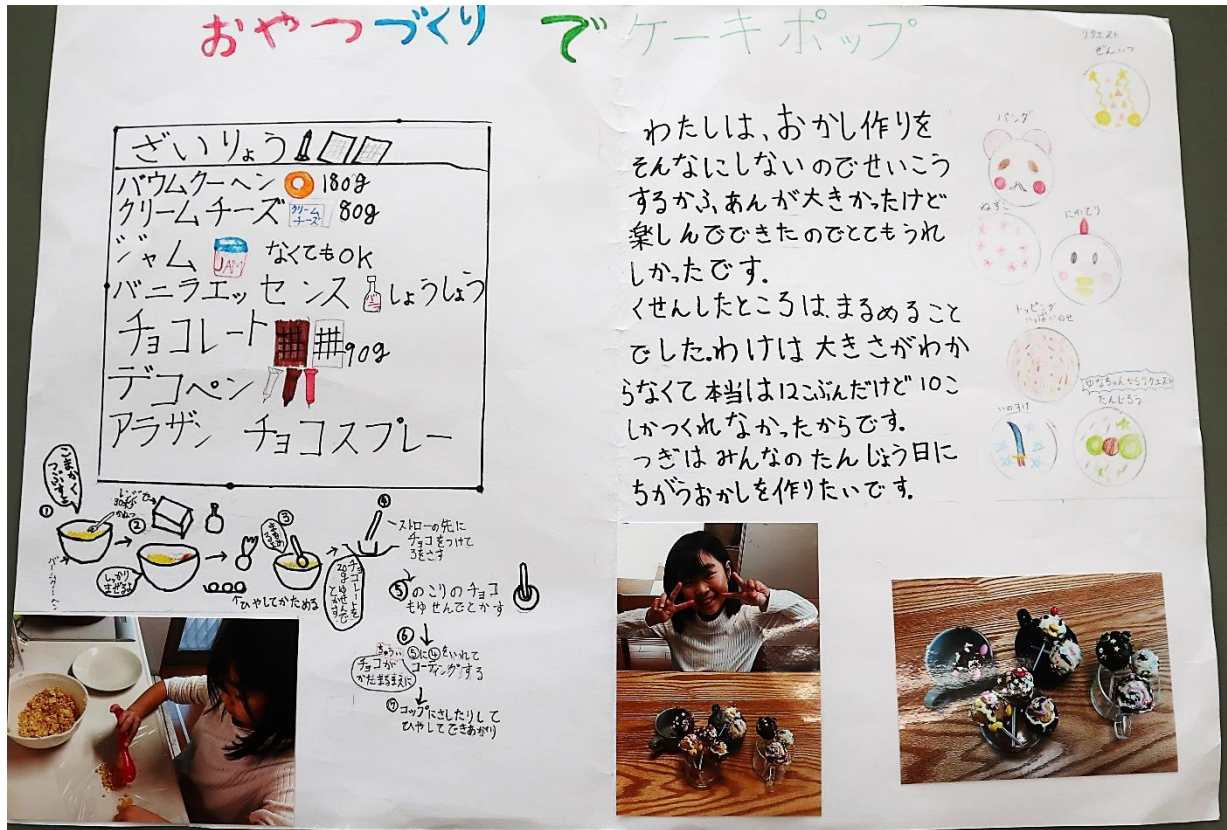 おやつづくり で ケーキポップ
ざいりょう
バウムクーヘン 180g
クリームチーズ クリームチーズ 80g
ジャム JAM なくてもOK
バニラエッセンス バニラ しょうしょう
チョコレート 90g
デコペン
アラザン チョコスプレー
こまかくつぶすよ
①
バームクーヘン
②
レンジで
30びょう
かねつ
しっかり
まぜるよ
③
まるめる
↑ひやしてかためる
チョコレートを
20gゆせんで
とかす
④
ストローの先に
チョコをつけて
3をさす
⑤のこりのチョコ
もゆせんでとかす
⑥
⑤に④をいれて
コーティングする
チョコが
かたまるまえに
⑦コップにさしたりして
ひやしてできあがり
わたしは、おかし作りを
そんなにしないのでせいこう
するかふあんが大きかったけど
楽しんでできたのでとてもうれ
しかったです.
くせんしたところは、まるめること
でした.わけは大きさがわか
らなくて本当は12こぶんだけど10こ
しかつくれなかったからです.
つぎはみんなのたんじょう日に
ちがうおかしを作りたいです.
リクエスト
ぜんいつ
パンダ
ねずこ
にわとり
トッピング
いっぱいのせ
ゆなちゃんからリクエスト
たんじろう
いのすけ